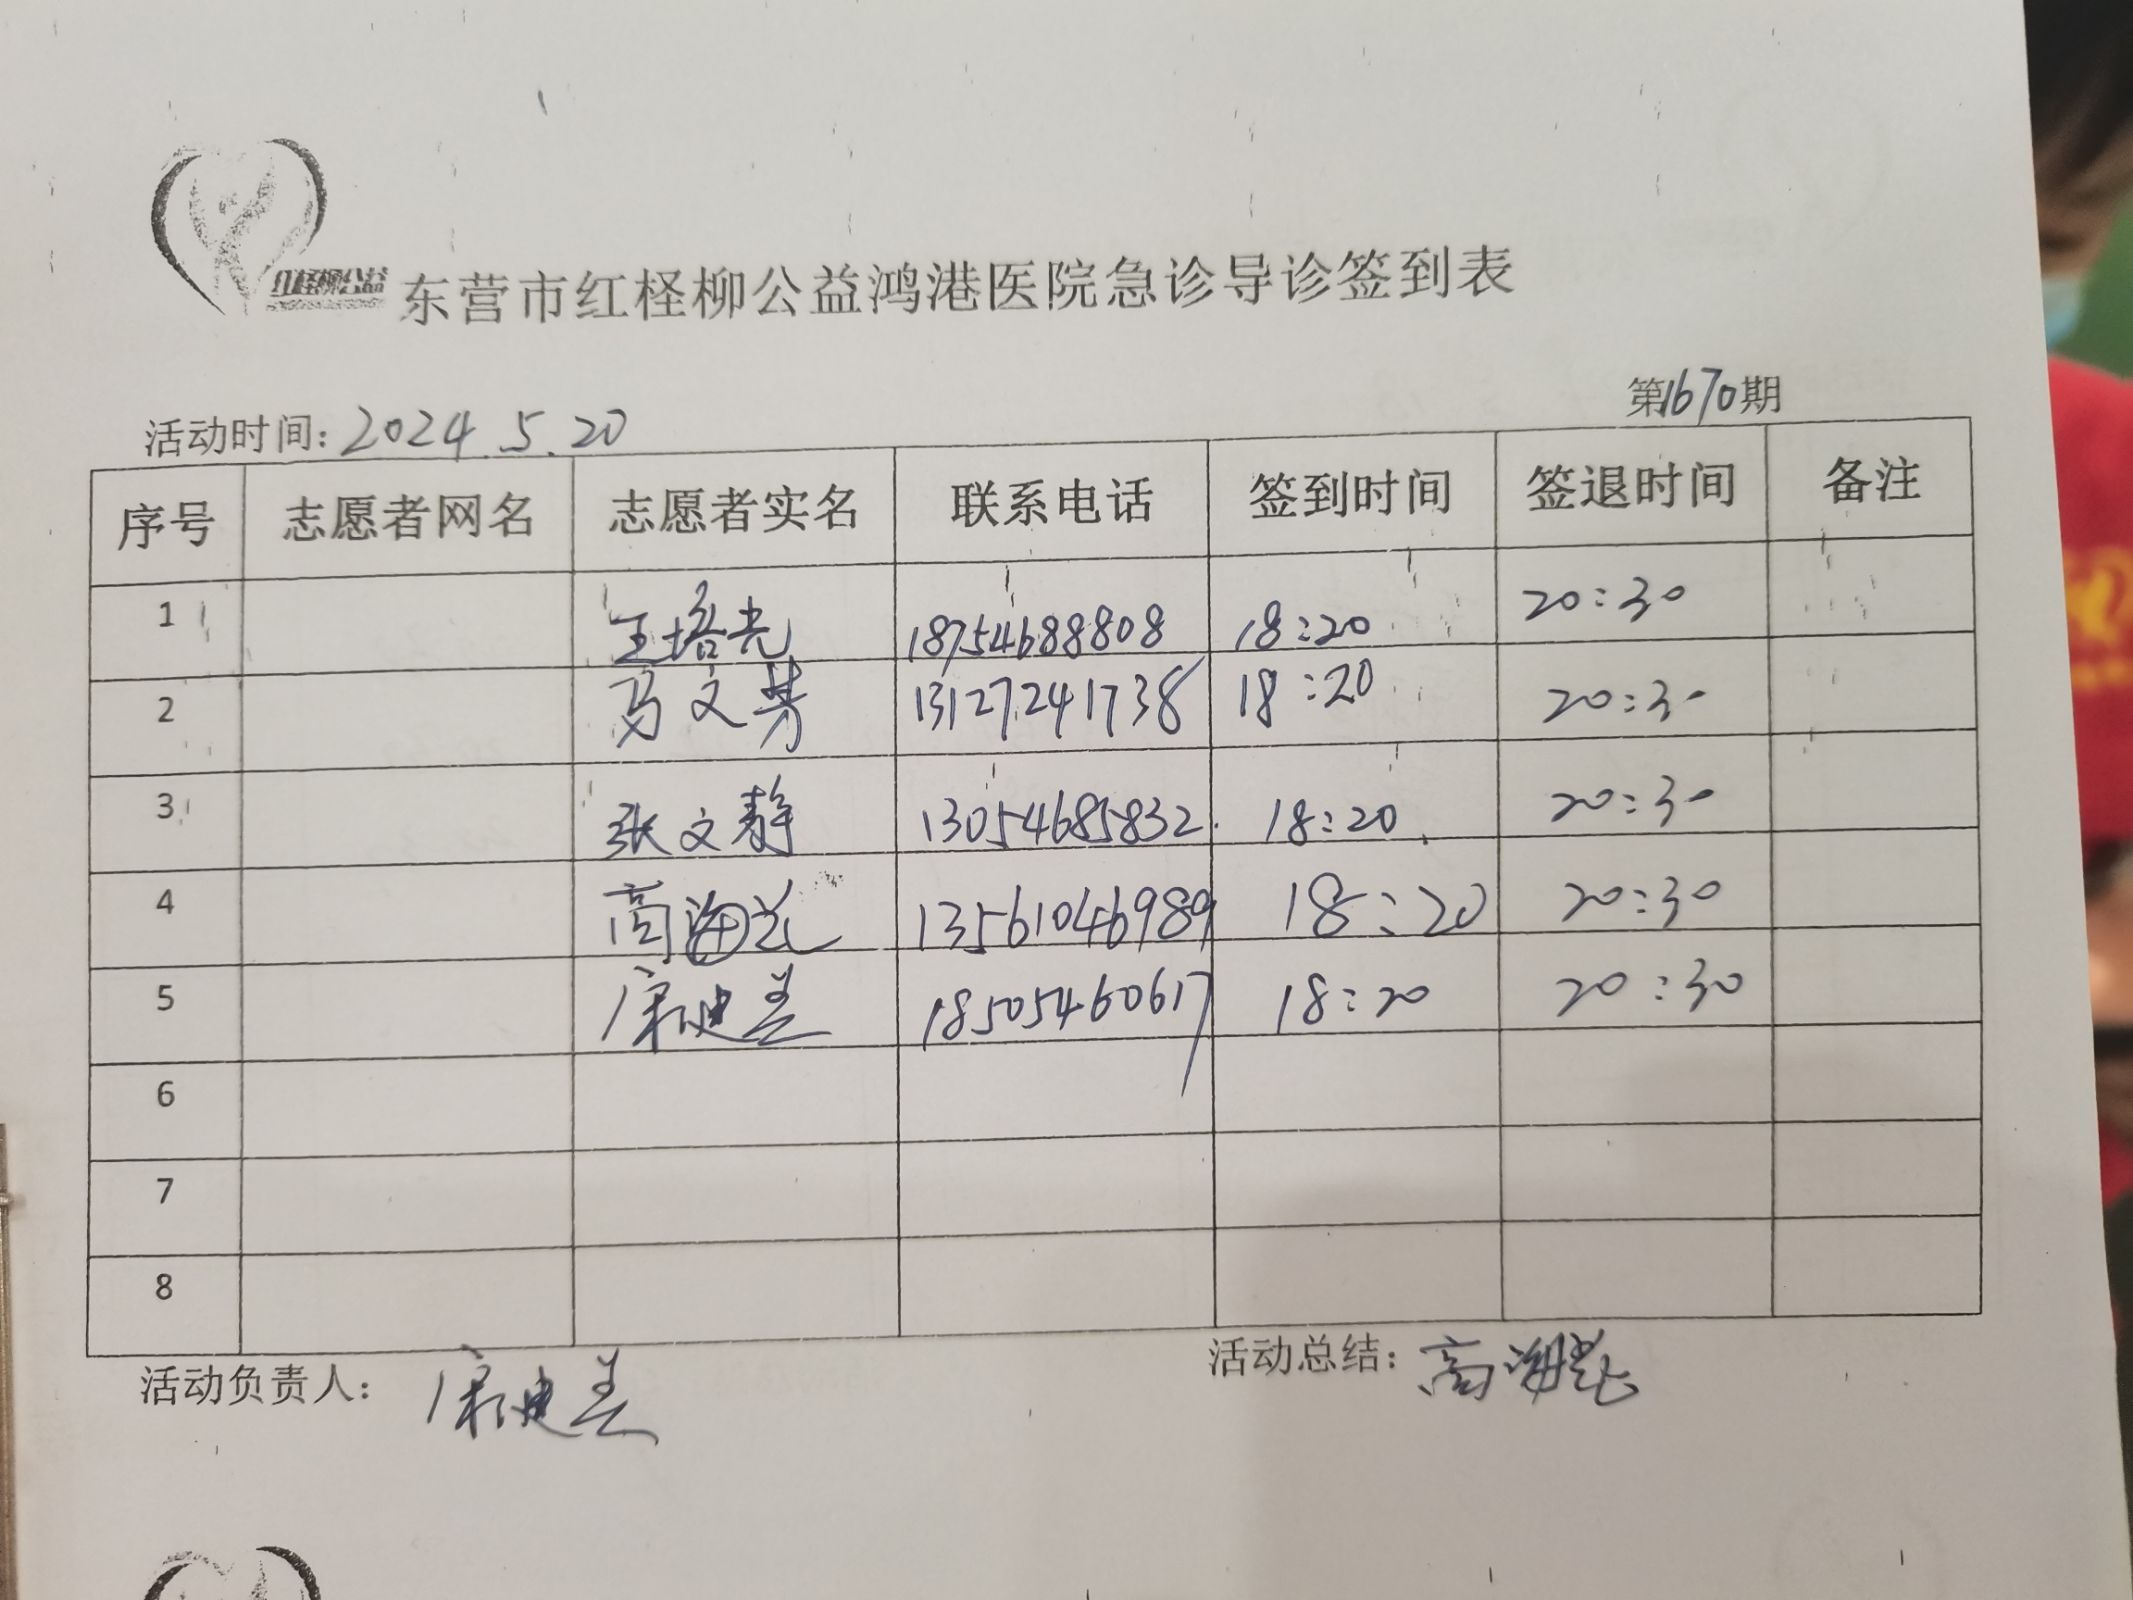 红柽柳公益
东营市红柽柳公益鸿港医院急诊导诊签到表
活动时间: 2024.5.20 第1670期
序号 志愿者网名 志愿者实名 联系电话 签到时间 签退时间 备注
1 王培光 18754688808 18:20 20:30
2 马文芳 13127241738 18:20 20:30
3 张文静 13054685832 18:20 20:30
4 高海 13561046989 18:20 20:30
5 18505460617 18:20 20:30
6
7
8
活动负责人: 活动总结: 高海